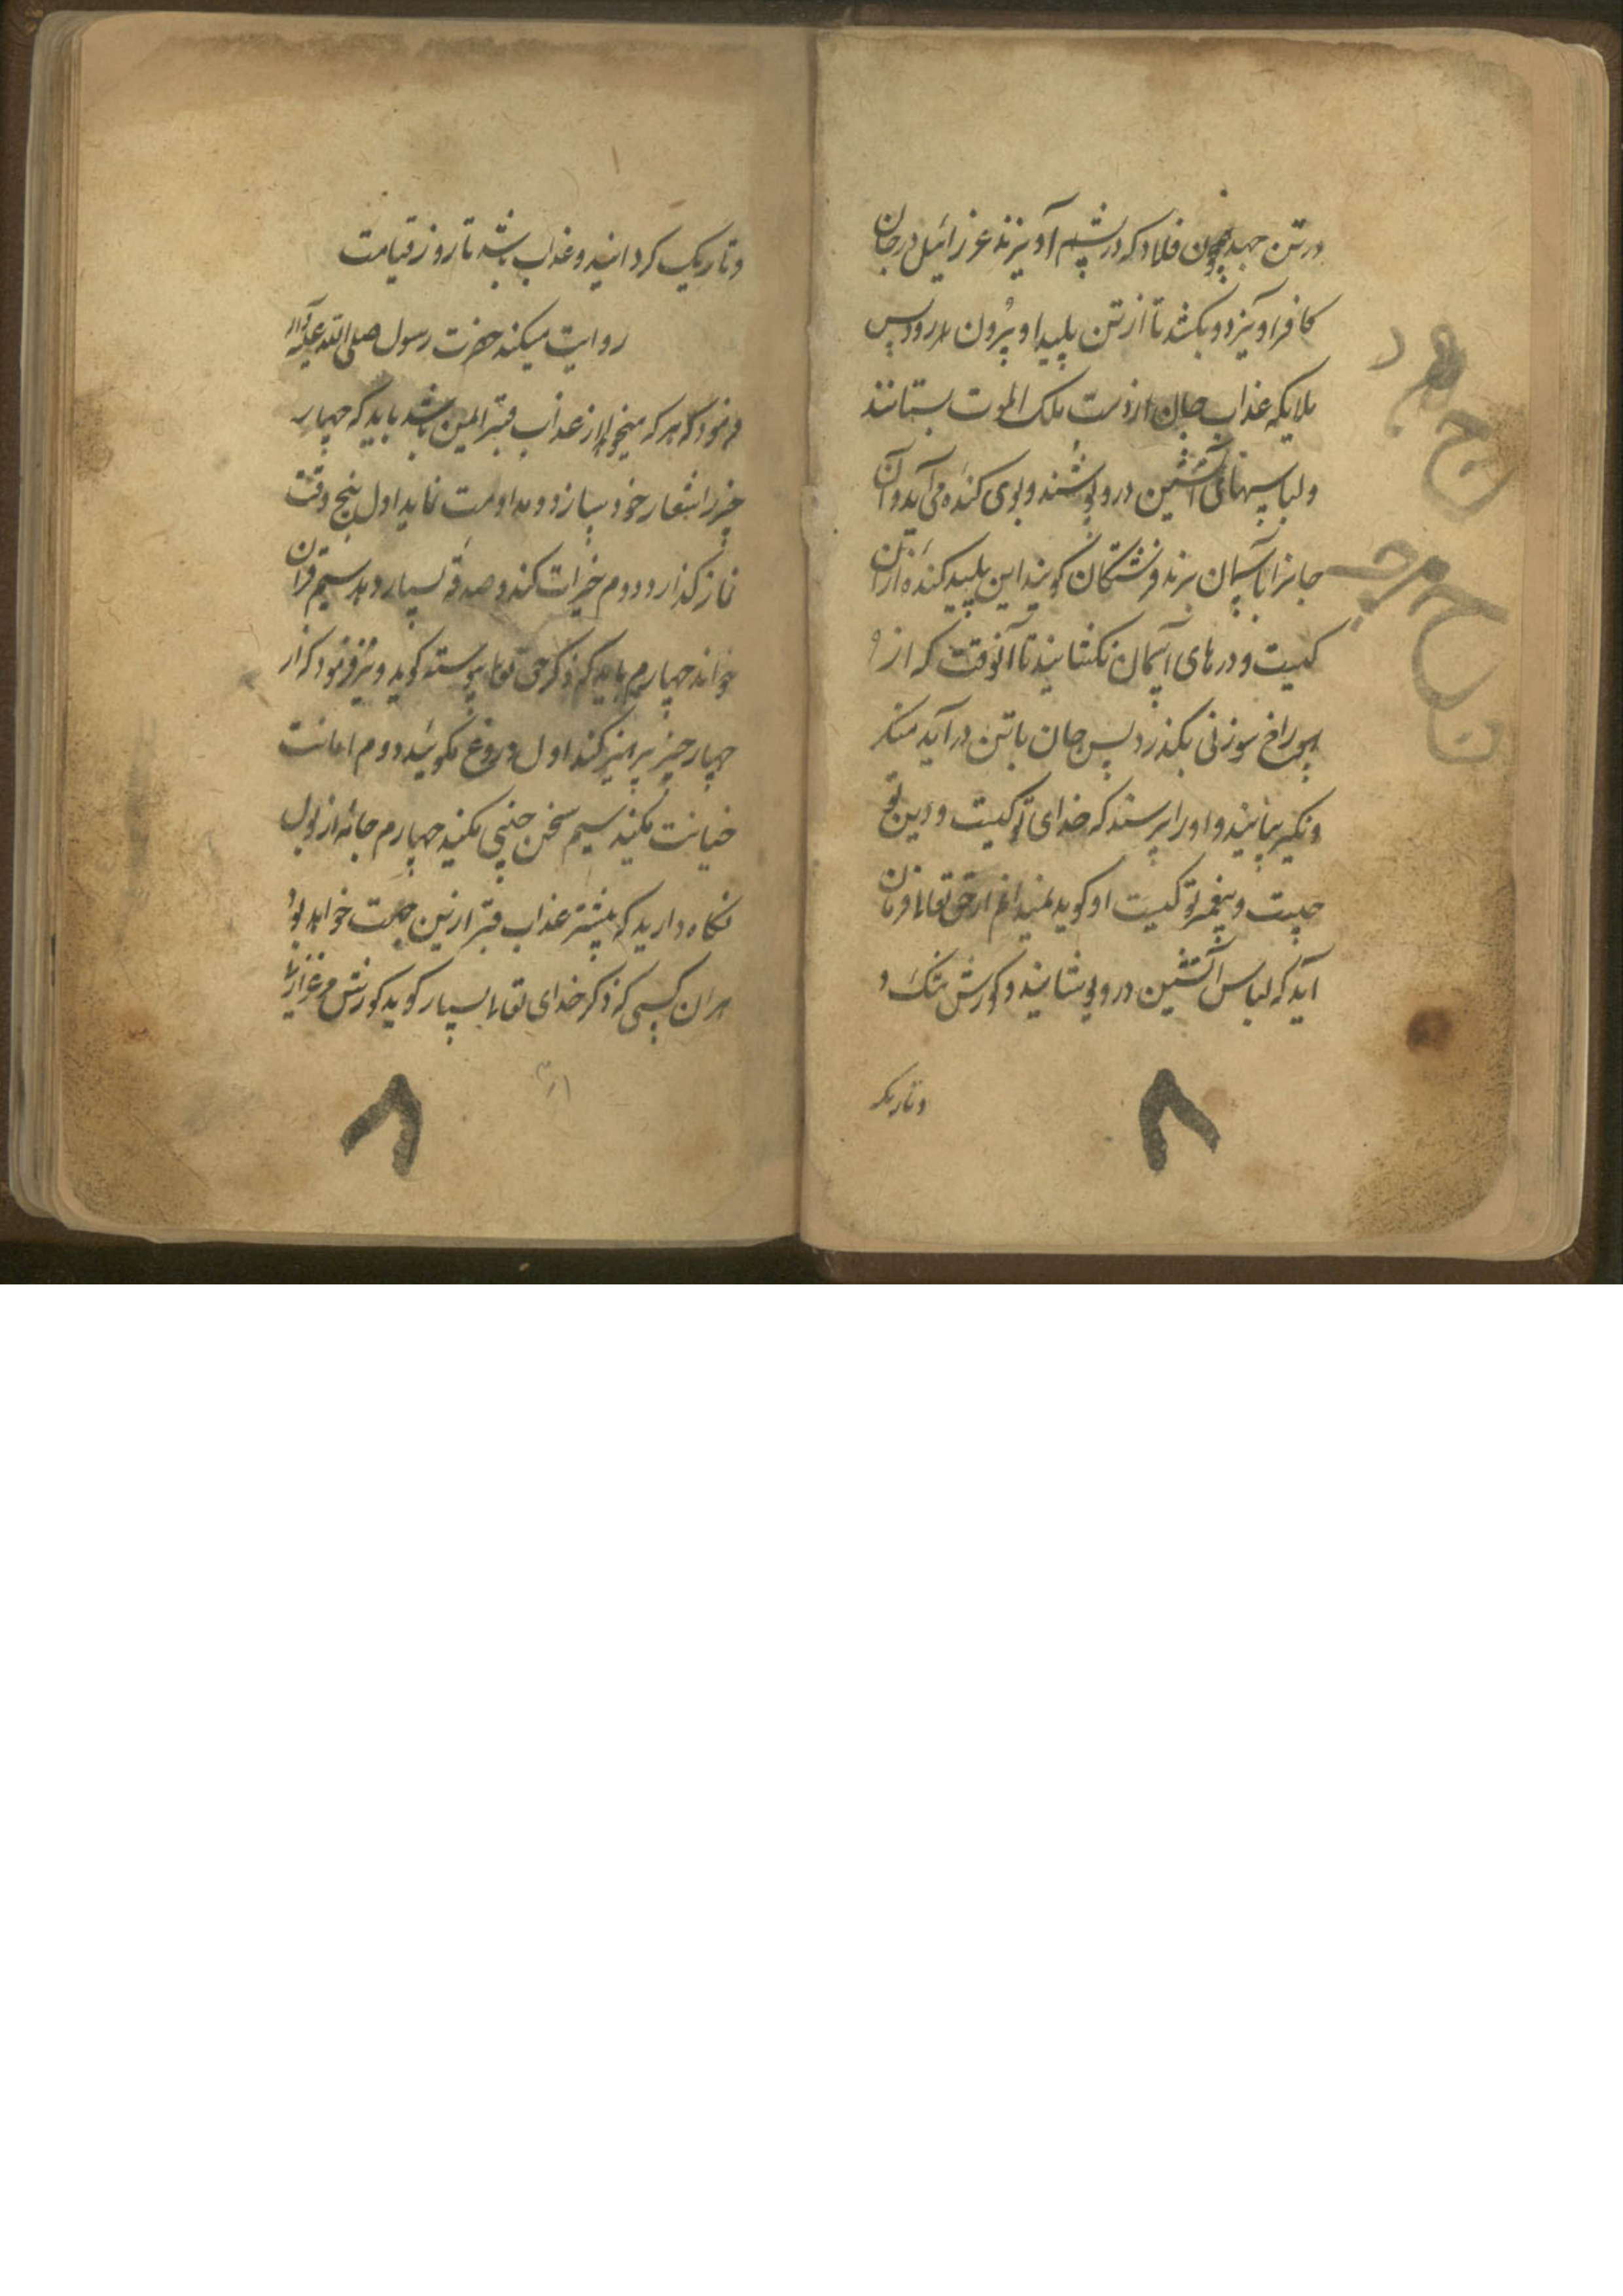 در تن جهد چون فلاد که در پشم آویزند عزرائیل در جان
کافر آویزد و بکشد تا از تن پلید او بیرون رود پس
ملایکه عذاب جان از دست ملک الموت بستانند
و لباسهای آتشین درو پوشند و بوی کنده می آید و آن
جانرا باسمان برند فرشتکان کویند این پلید کنده از آن
کیست و درهای آسمان نکشایند تا آنوقت که از
سوراخ سوزنی بکذرد پس جان با تن در آید منکر
و نکیر بیایند و او را پرسند که خدای تو کیست و دین تو
چیست و پیغمبر تو کیست او کوید نمیدانم از حق تعالی فرمان
آید که لباس آتشین درو پوشانید و کورش تنک و
و تاریک
و تاریک کردانید و عذاب باشد تا روز قیامت
روایت میکند حضرت رسول صلی الله علیه و آله
فرمود که هر که میخواهد از عذاب قبر ایمن باشد باید که چهار
چیز را شعار خود سازد و مداومت نماید اول پنج وقت
نماز کذارد دوم خیرات کند و صدقه بسیار دهد سیم قرآن
خواند چهارم باید که ذکر حق تعا پیوسته کوید و نیز فرمود که از
چهار چیز پرهیز کند اول دروغ نکوئید دوم امانت
خیانت نکنید سیم سخن چینی نکنید چهارم جامه از بول
نکاه دارید که بیشتر عذاب قبر ازین جهت خواهد بود
هر آن کسی که ذکر خدای تعا بسیار کوید کورش مرغزار
۸
۸